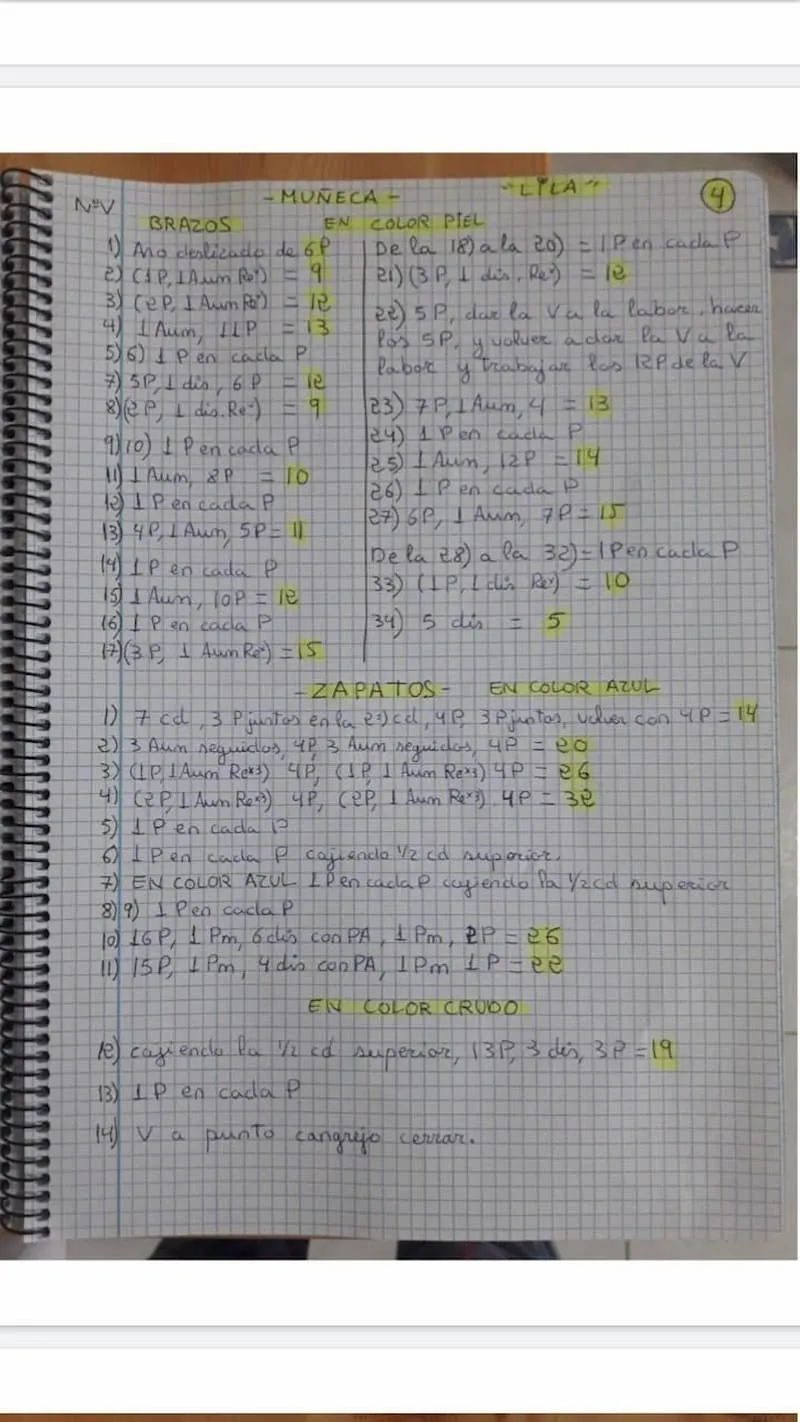 Nº V
- MUÑECA - "LILA" 4
BRAZOS EN COLOR PIEL
1) Aro deslizado de 6P
2) (1P, 1 Aum Re*) = 9
3) (2P, 1 Aum Re*) = 12
4) 1 Aum, 11P = 13
5) 6) 1 P en cada P
7) 5P, 1 dis, 6P = 12
8) (2P, 1 dis. Re*) = 9
9) 10) 1 P en cada P
11) 1 Aum, 8P = 10
12) 1 P en cada P
13) 4P, 1 Aum, 5P = 11
14) 1 P en cada P
15) 1 Aum, 10P = 12
16) 1 P en cada P
17) (3P, 1 Aum Re*) = 15
De la 18) a la 20) = 1 P en cada P
21) (3P, 1 dis. Re*) = 12
22) 5P, dar la V a la labor, hacer
los 5P, y volver a dar la V a la
labor y trabajar los 12P de la V
23) 7P, 1 Aum, 4 = 13
24) 1 P en cada P
25) 1 Aum, 12P = 14
26) 1 P en cada P
27) 6P, 1 Aum, 7P = 15
De la 28) a la 32) = 1 P en cada P
33) (1P, 1 dis Re*) = 10
34) 5 dis = 5
- ZAPATOS - EN COLOR AZUL
1) 7 cd, 3 P juntos en la 2ª) cd, 4P, 3 P juntos, volver con 4P = 14
2) 3 Aum seguidos, 4P, 3 Aum seguidos, 4P = 20
3) (1P, 1 Aum Re*3) 4P, (1P, 1 Aum Re*3) 4P = 26
4) (2P, 1 Aum Re*3) 4P, (2P, 1 Aum Re*3) 4P = 32
5) 1 P en cada P
6) 1 P en cada P cojiendo 1/2 cd superior.
7) EN COLOR AZUL 1 P en cada P cojiendo la 1/2 cd superior
8) 9) 1 P en cada P
10) 16P, 1 Pm, 6 dis con PA, 1 Pm, 2P = 26
11) 15P, 1 Pm, 4 dis con PA, 1 Pm 1P = 22
EN COLOR CRUDO
12) cojiendo la 1/2 cd superior, 13P, 3 dis, 3P = 19
13) 1 P en cada P
14) V a punto cangrejo cerrar.